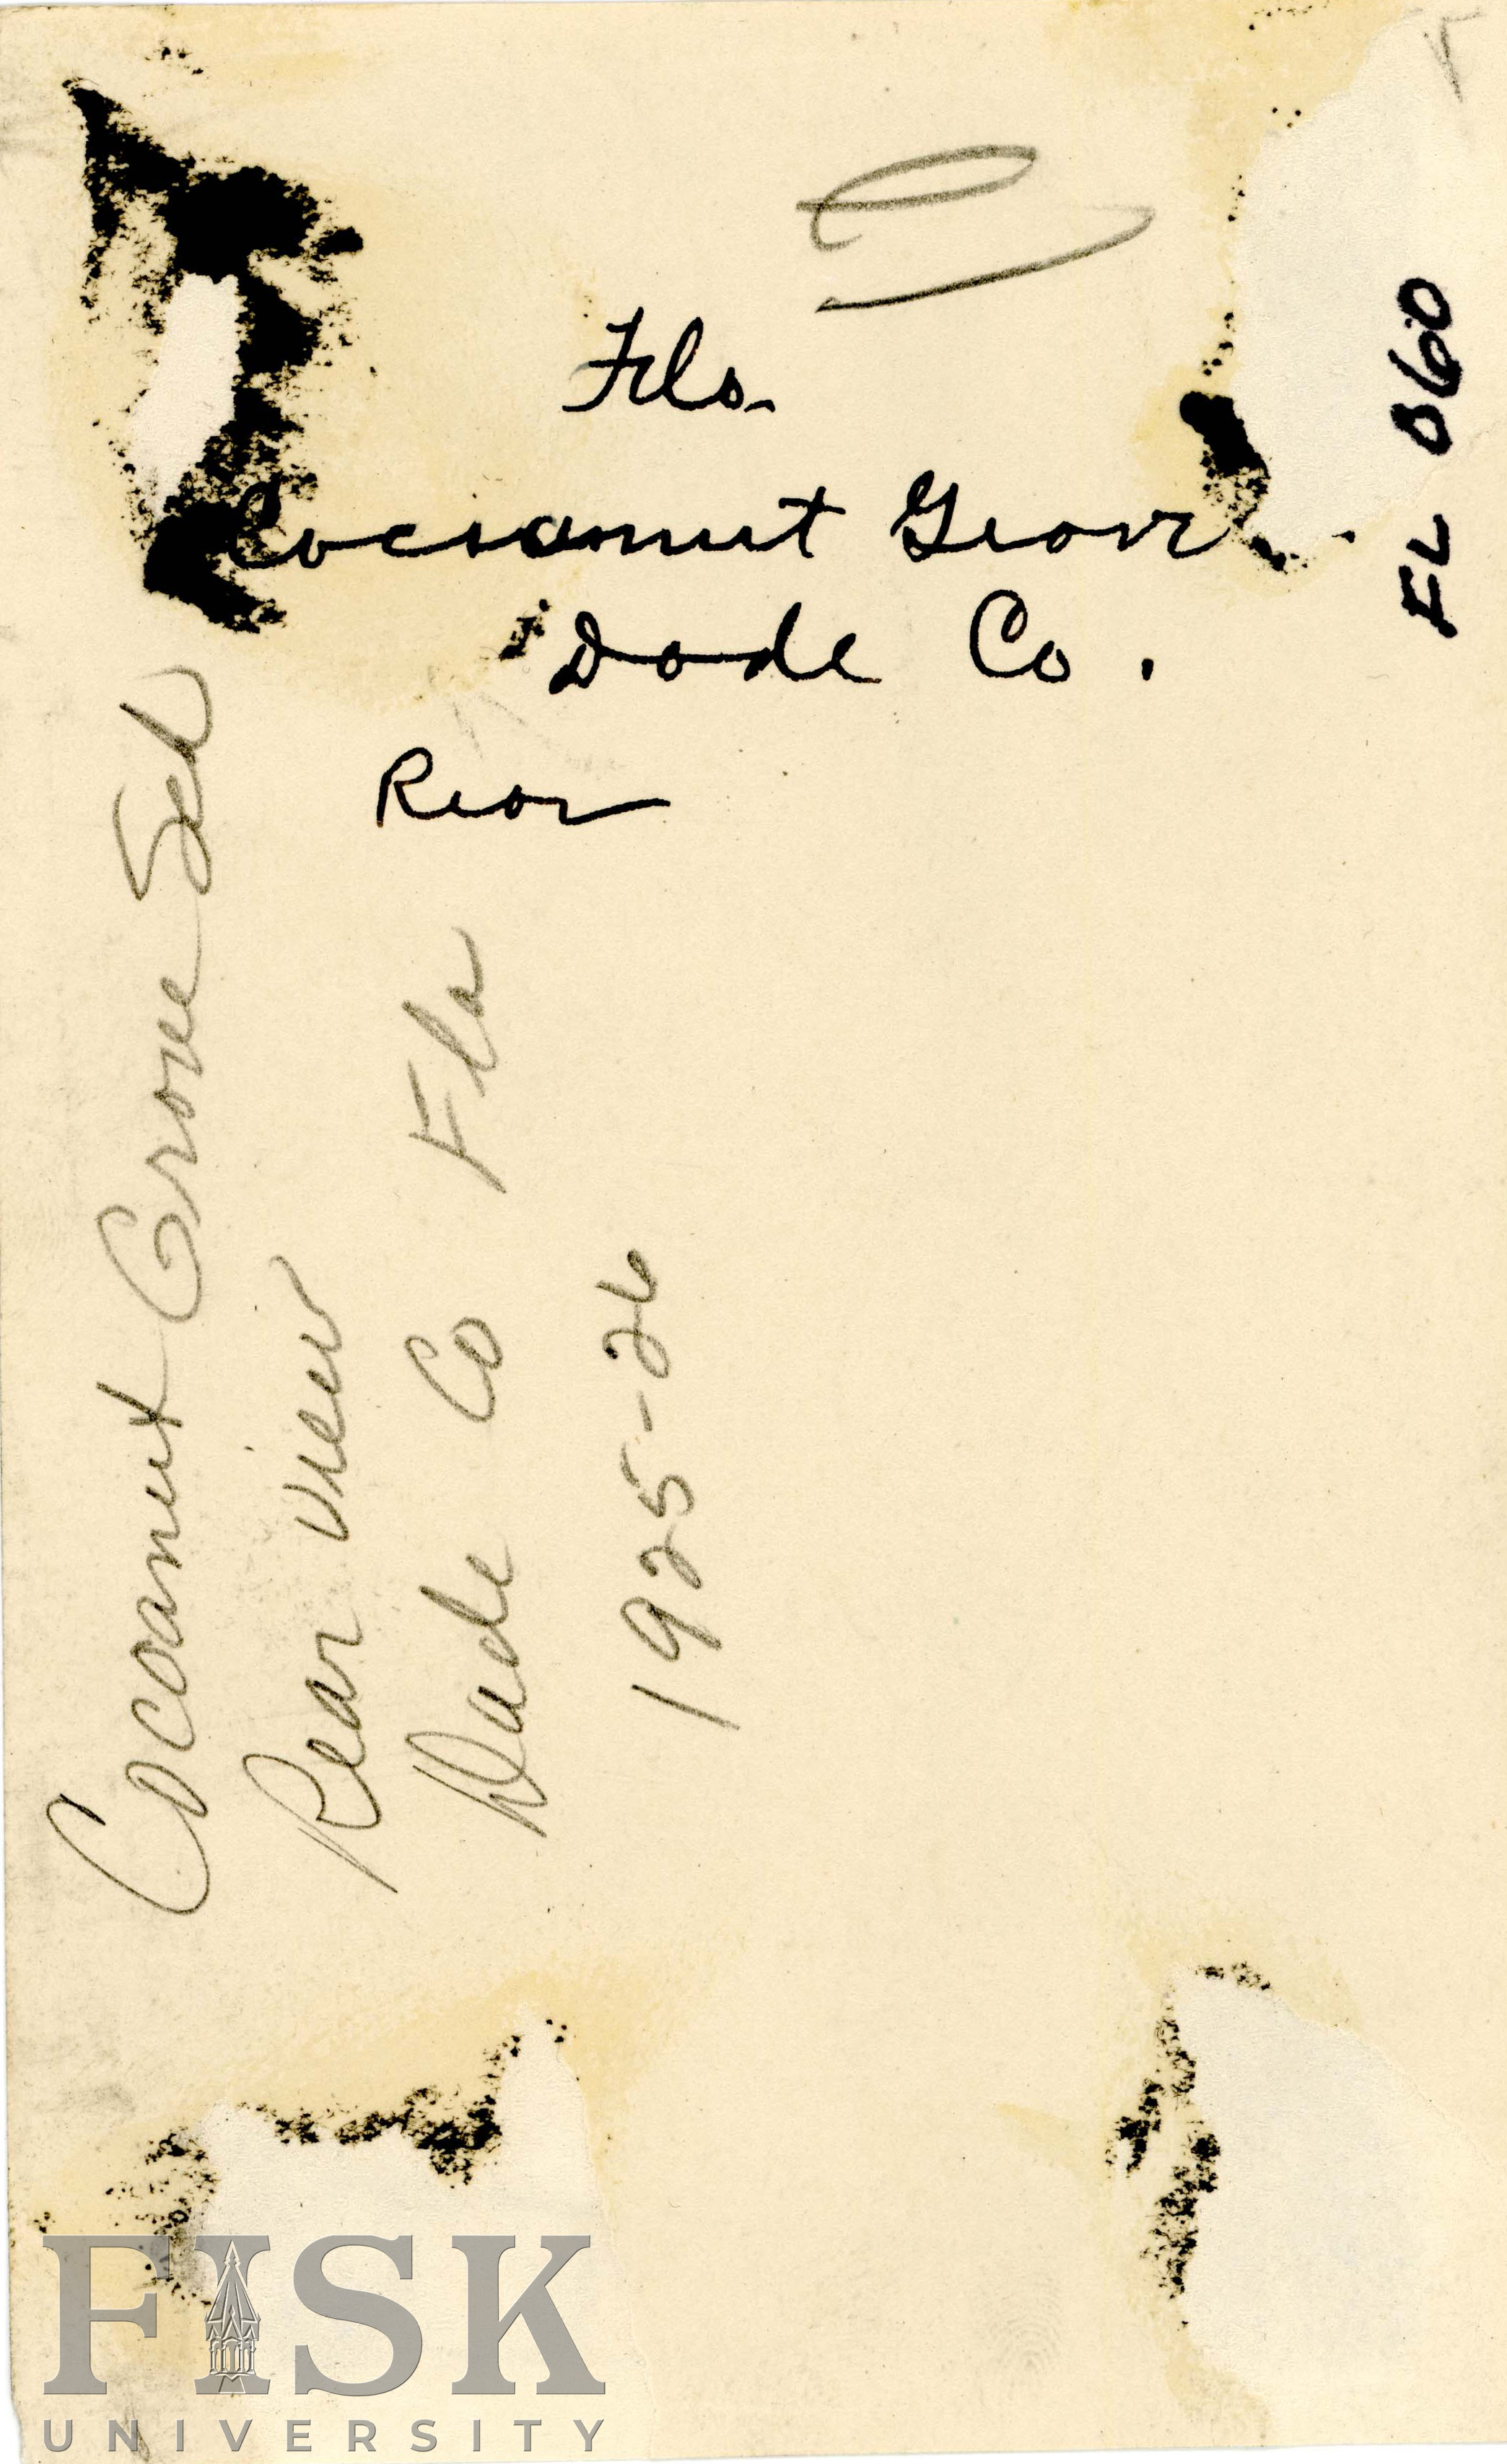 Fla.
Cocoanut Grove
Dade Co.
Rear
FL 060
Cocoanut Grove Sch
Rear view
Dade Co Fla
1925-26
FISK
UNIVERSITY